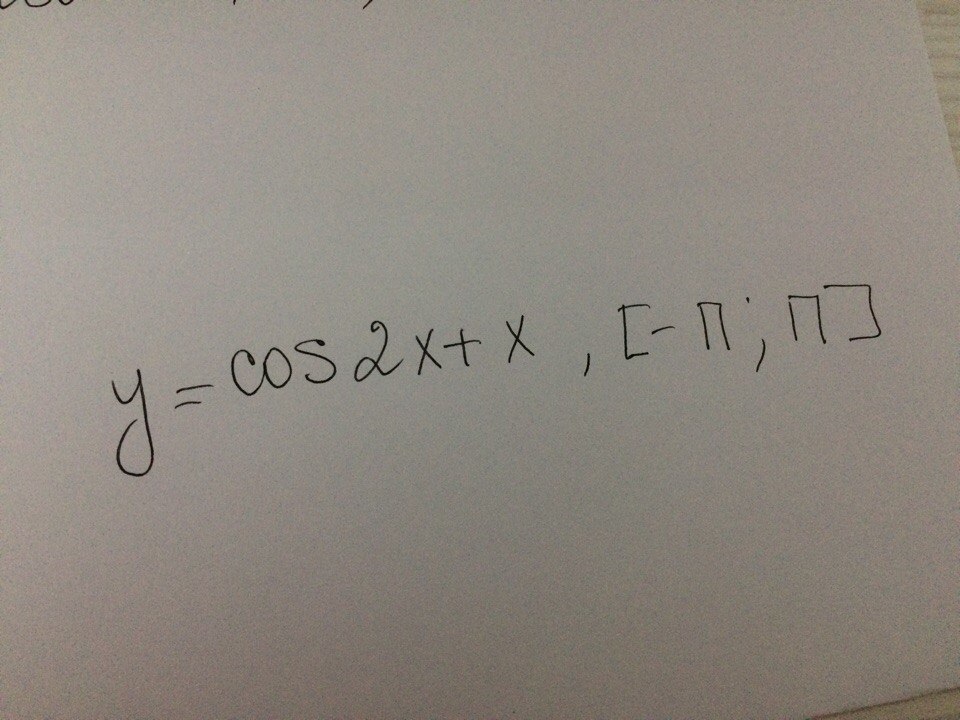 y = cos 2x + x , [- π ; π ]